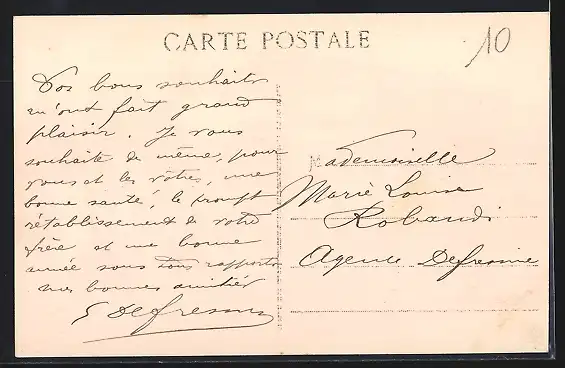 CARTE POSTALE
10
Vos bons souhaits
m'ont fait grand
plaisir. Je vous
souhaite de même, pour
vous et les vôtres, une
bonne santé, le prompt
rétablissement de votre
frère et une bonne
année sous tous rapports
mes bonnes amitiés
E Defresne
Mademoiselle
Marie Louise
Robaudi
Agence Defresne